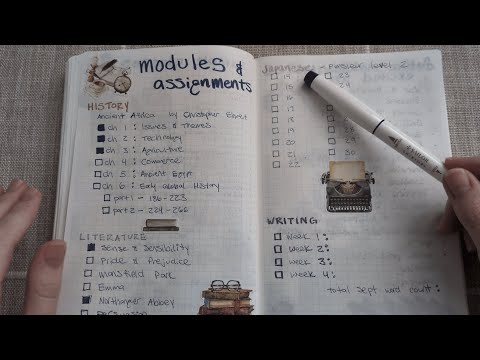 modules &
assignments
HISTORY
Ancient Africa by Christopher Ehret
ch 1: Issues & Themes
ch 2: Technology
ch 3: Agriculture
ch 4: Commerce
ch 5: Ancient Egypt
ch 6: Early Global History
part 1 - 186-223
part 2 - 224-266
LITERATURE
Sense & Sensibility
Pride & Prejudice
Mansfield Park
Emma
Northanger Abbey
Japanese - level 2
14 23
15 24
16
17
18
19
20
21 30
22
WRITING
week 1:
week 2:
week 3:
week 4:
total sept word count: